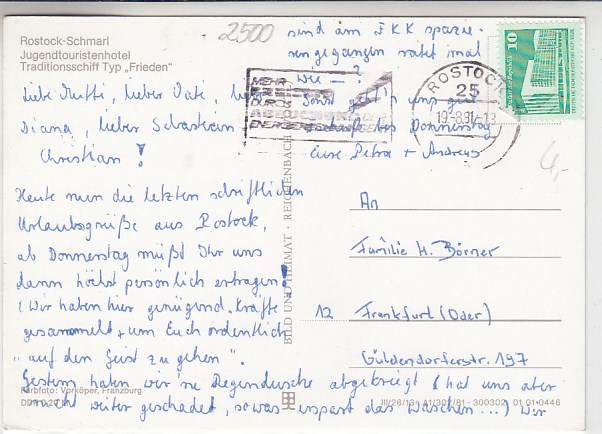 Rostock-Schmarl
Jugendtouristenhotel
Traditionsschiff Typ „Frieden"
2500
Liebe Mutti, lieber Vati, liebe
Diana, lieber Sebastian +
Christian!
Heute nun die letzten schriftlichen
Urlaubsgrüße aus Rostock,
ab Donnerstag müßt Ihr uns
dann höchst persönlich ertragen!
(Wir haben hier genügend Kräfte
gesammelt, um Euch ordentlich
"auf den Geist zu gehen".
Gestern haben wir ne Regendusche abgekriegt (hat uns aber
nicht weiter geschadet, sowas erspart das Waschen...) Wir
sind am FKK spazie-
rengegangen ratet mal
wie – ?
Sonst geht's uns gut
bis Donnerstag
Eure Petra + Andreas
MEHR
DURCH
ROSTOCK
25
19.-8.81-13
10
4,-
An
Familie H. Börner
12 Frankfurt (Oder)
Güldendorferstr. 197
BILD UND HEIMAT · REICHENBACH
Farbfoto: Vorköper, Franzburg
III/26/13 A1/302/81 - 300302 01 01 0446